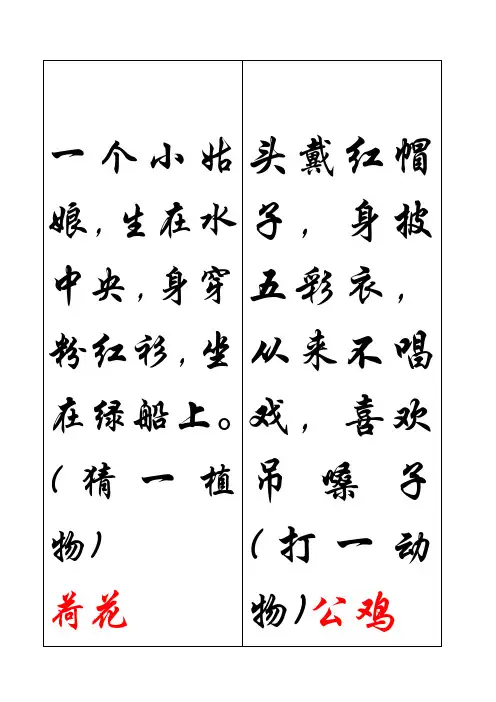 一个小姑
娘,生在水
中央,身穿
粉红衫,坐
在绿船上。
(猜一植
物)
荷花
头戴红帽
子，身披
五彩衣，
从来不唱
戏，喜欢
吊嗓子
(打一动
物)公鸡